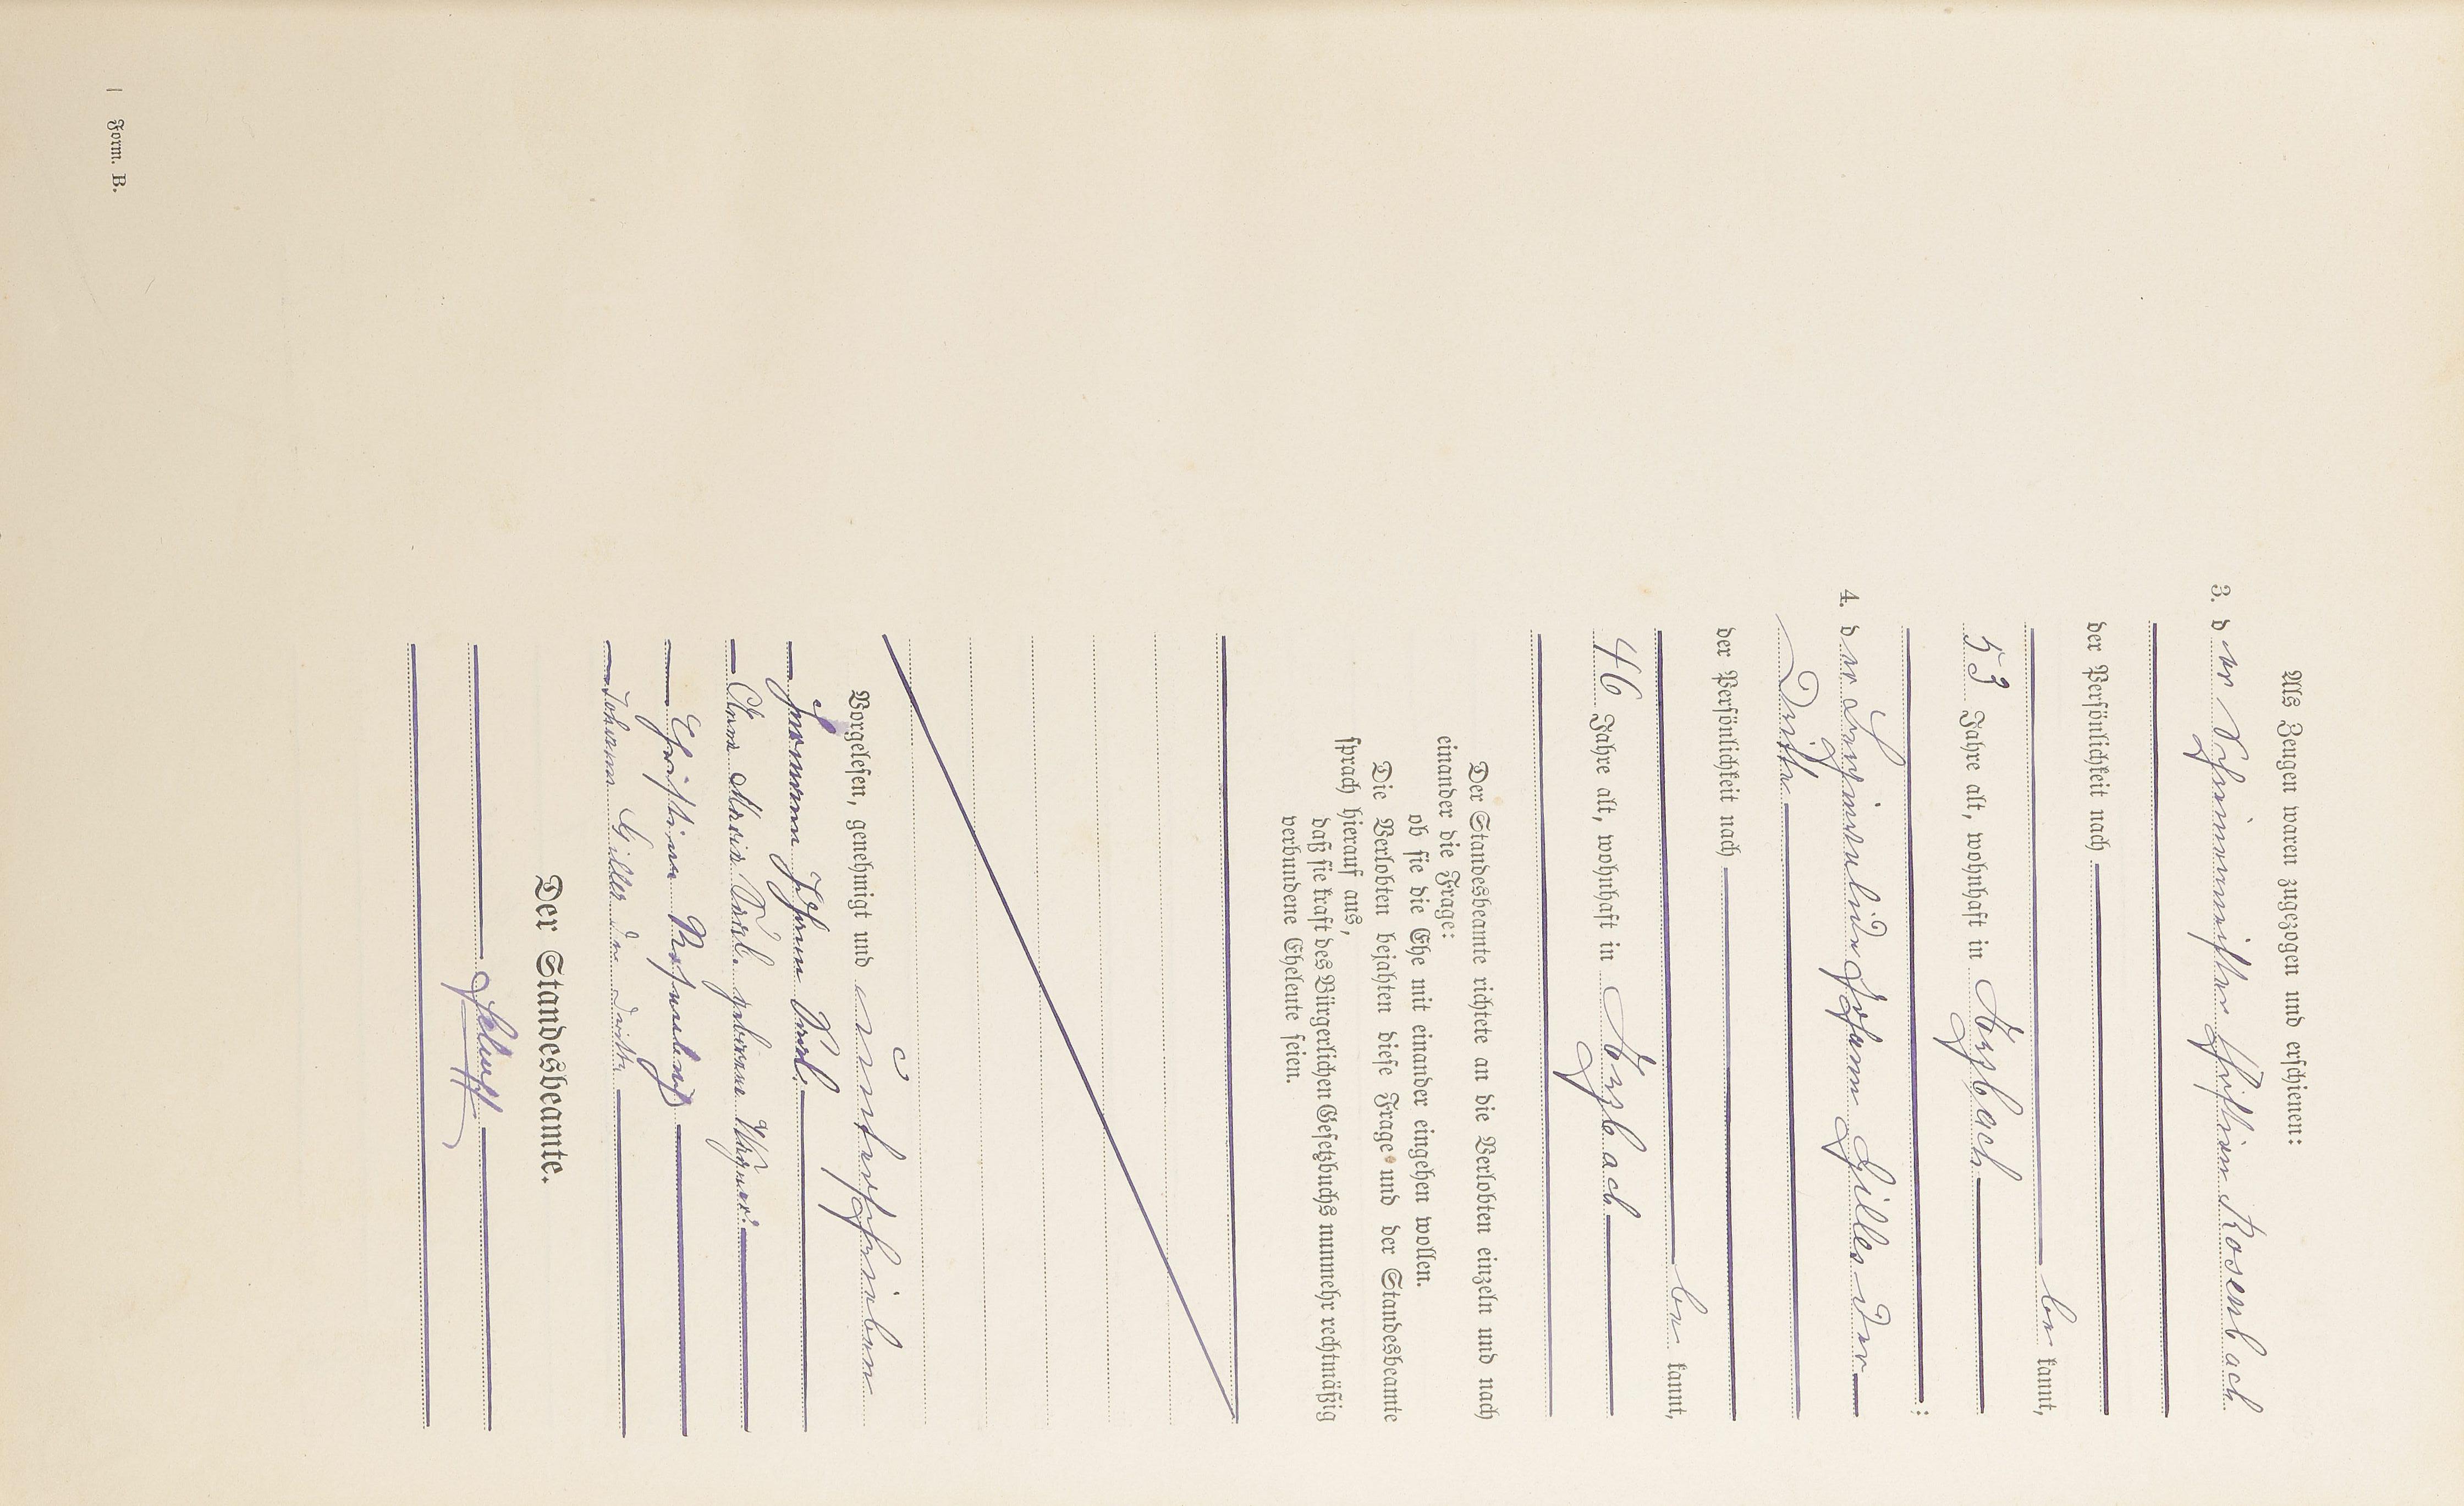 Als Zeugen waren zugezogen und erschienen:
3. der Schreinermeister Christian Rosenbach
der Persönlichkeit nach
be kannt,
53 Jahre alt, wohnhaft in Arzbach
:
4. der Christian Gilles der
Dritte
der Persönlichkeit nach
be kannt,
46 Jahre alt, wohnhaft in Arzbach
Der Standesbeamte richtete an die Verlobten einzeln und nach
einander die Frage:
ob sie die Ehe mit einander eingehen wollen.
Die Verlobten bejahten diese Frage und der Standesbeamte
sprach hierauf aus,
daß sie kraft des Bürgerlichen Gesetzbuchs nunmehr rechtmäßig
verbundene Eheleute seien.
Vorgelesen, genehmigt und unterschrieben
Johann
Anna Maria geborene
Christian
Johann Gilles der Dritte
Der Standesbeamte.
Form. B.